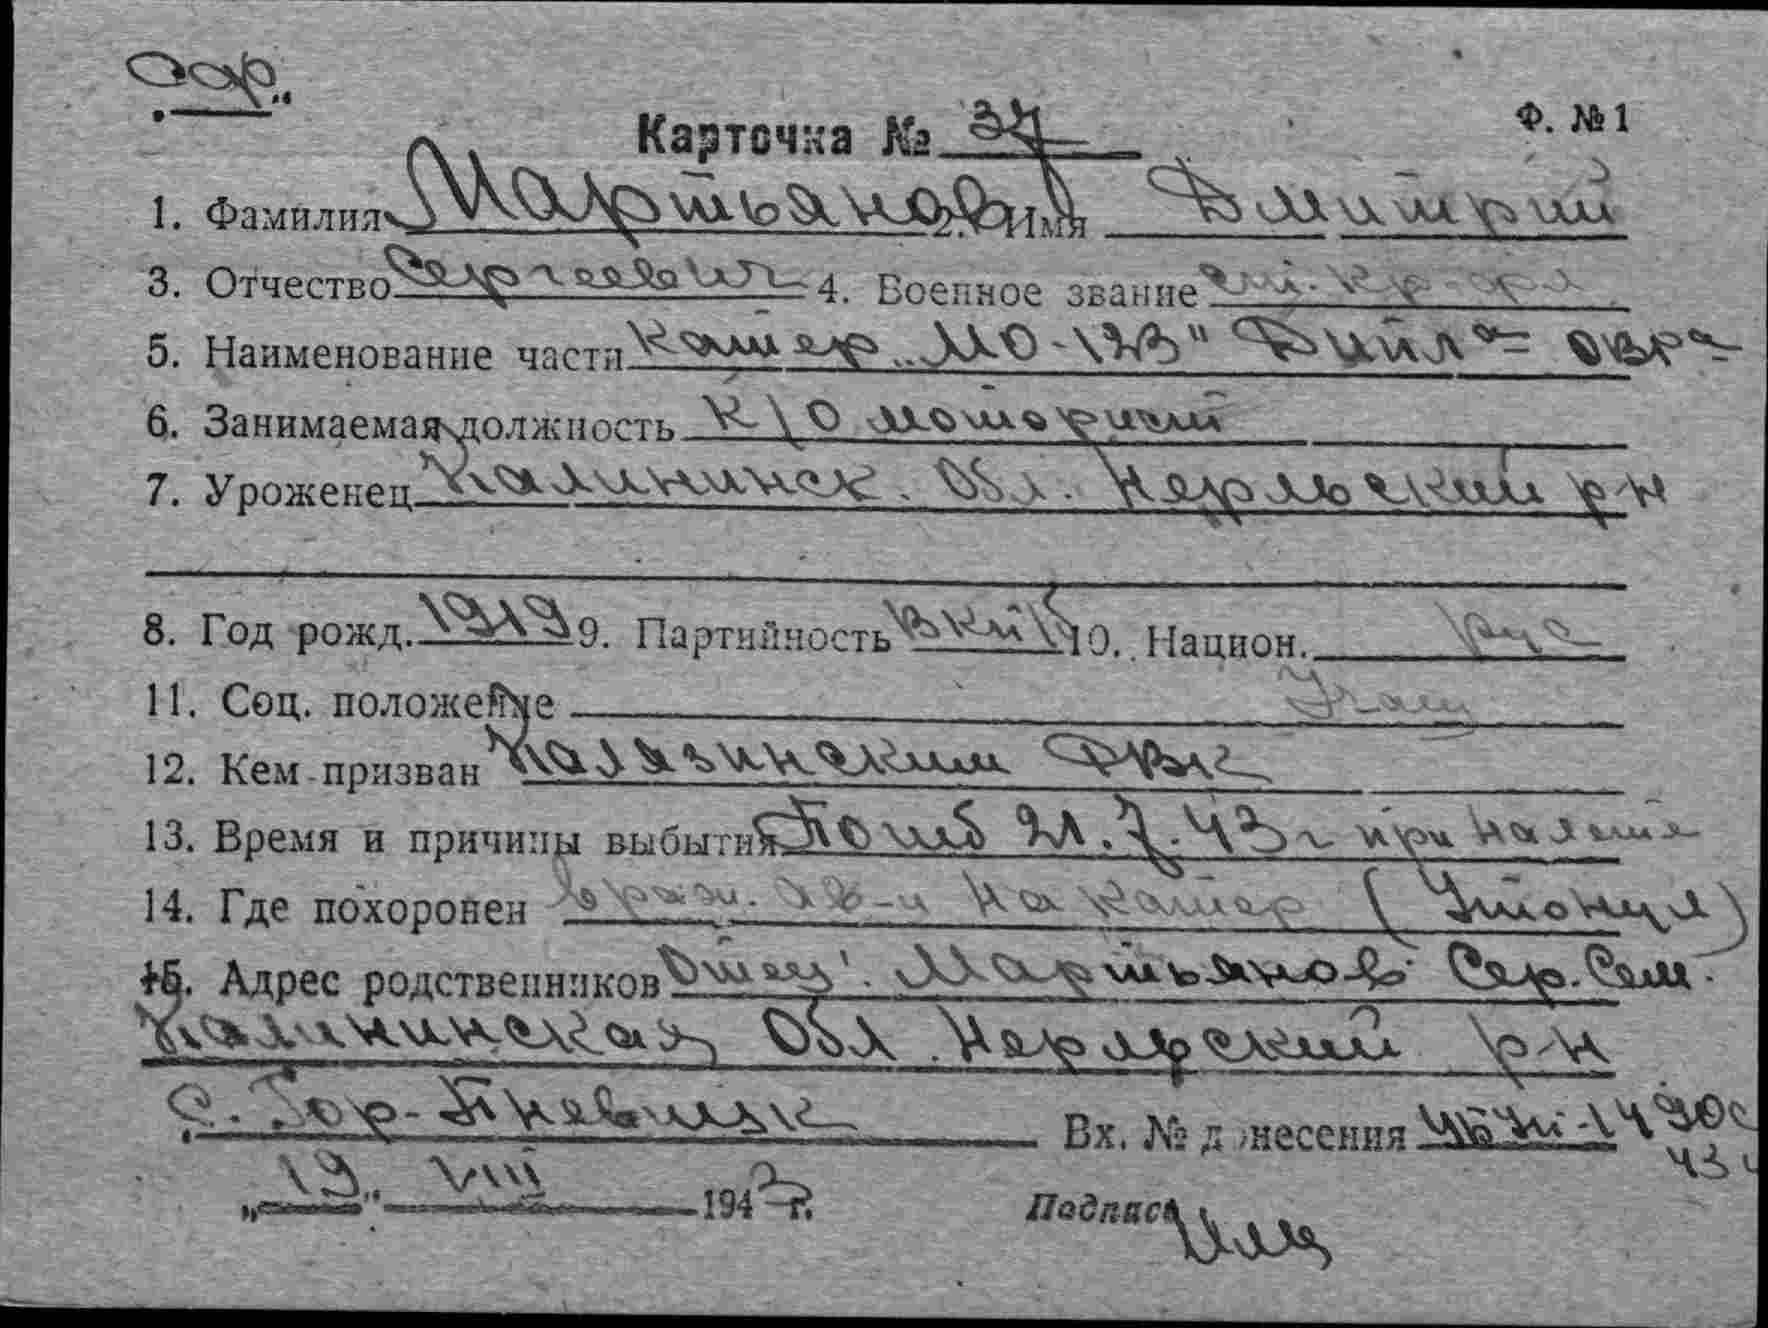 Карточка № 37 Ф. № 1
1. Фамилия Мартьянов 2. Имя Дмитрий
3. Отчество Сергеевич 4. Военное звание
5. Наименование части Катер „МО-123" ОВРа
6. Занимаемая должность К/О мотористов
7. Уроженец Калининск. Обл. Нерльский р-н
8. Год рожд. 1919 9. Партийность ВКП/б 10. Национ. рус
11. Соц. положение Учащ
12. Кем призван Калязинским РВК
13. Время и причины выбытия Погиб 21.7.43 г при налете
14. Где похоронен враж. ав-и на катер (Утонул)
15. Адрес родственников Отец: Мартьянов Сер. Сем.
Калининская Обл. Нерльский р-н
Вх. № донесения
„19" VIII 1943 г. Подпись